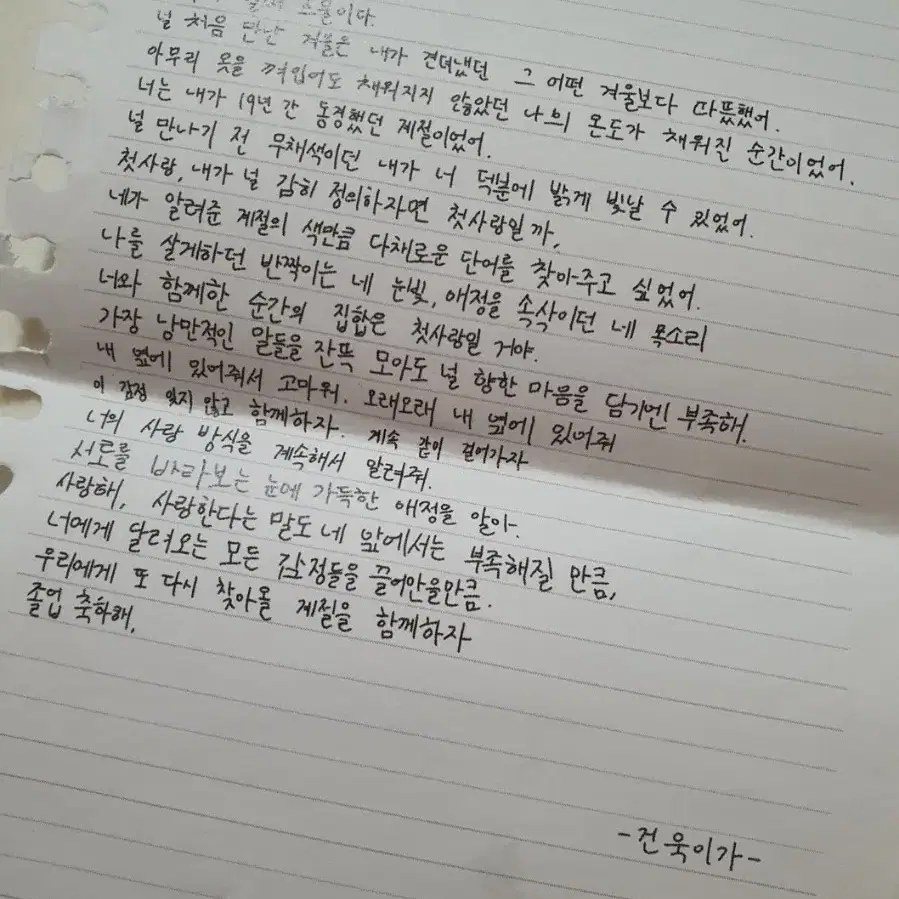 스물이다.
널 처음 만난 겨울은 내가 견뎌냈던 그 어떤 겨울보다 따뜻했어.
아무리 옷을 껴입어도 채워지지 않았던 나의 온도가 채워진 순간이었어.
너는 내가 19년 간 동경했던 계절이었어.
널 만나기 전 무채색이던 내가 너 덕분에 밝게 빛날 수 있었어.
첫사랑, 내가 널 감히 정의하자면 첫사랑일까,
네가 알려준 계절의 색만큼 다채로운 단어를 찾아주고 싶었어.
나를 살게하던 반짝이는 네 눈빛, 애정을 속삭이던 네 목소리
너와 함께한 순간의 집합은 첫사랑일 거야.
가장 낭만적인 말들을 잔뜩 모아도 널 향한 마음을 담기엔 부족해.
내 옆에 있어줘서 고마워. 오래오래 내 옆에 있어줘
이 감정 잊지 않고 함께하자. 계속 같이 걸어가자
너의 사랑 방식을 계속해서 알려줘.
서로를 바라보는 눈에 가득한 애정을 알아.
사랑해, 사랑한다는 말도 네 앞에서는 부족해질 만큼,
너에게 달려오는 모든 감정들을 끌어안을만큼.
우리에게 또 다시 찾아올 계절을 함께하자
졸업 축하해,
-건욱이가-